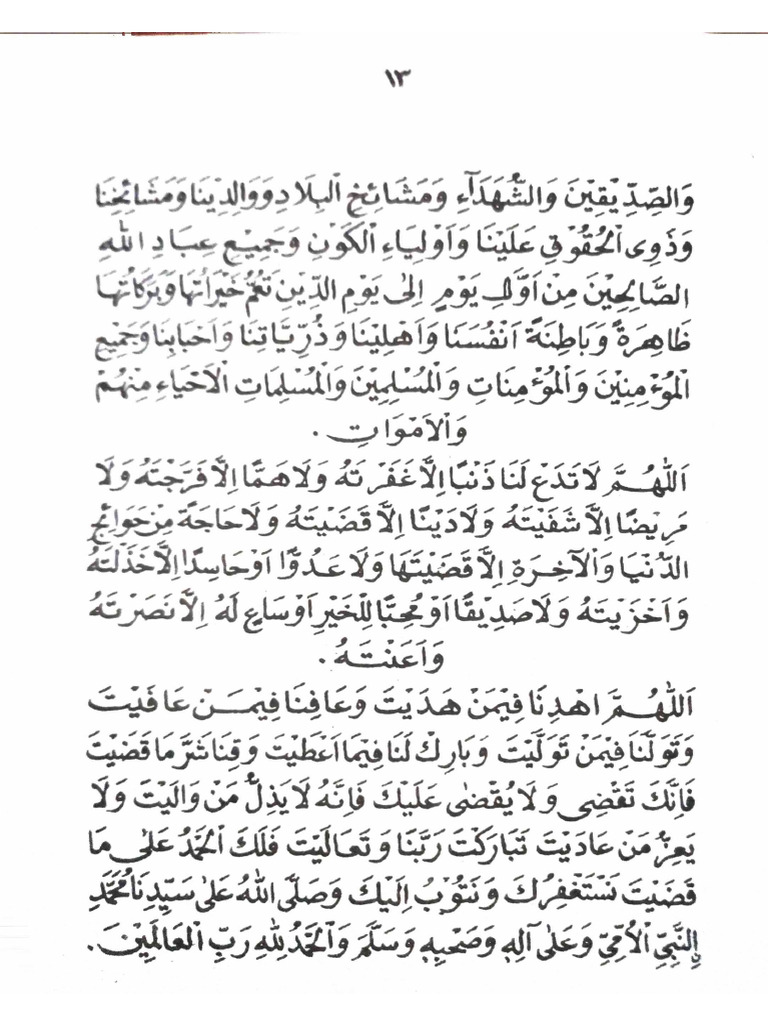 ١٣
وَالصِّدِّيْقِيْنَ وَالشُّهَدَآءِ وَمَشَائِخِ الْبِلَادِ وَوَالِدِيْنَا وَمَشَائِخِنَا
وَذَوِى الْحُقُوْقِ عَلَيْنَا وَأَوْلِيَاءِ الْكَوْنِ وَجَمِيْعِ عِبَادِ اللهِ
الصَّالِحِيْنَ مِنْ أَوَّلِ يَوْمٍ اِلىٰ يَوْمِ الدِّيْنِ تَعُمُّ خَيْرَاتُهَا وَبَرَكَاتُهَا
ظَاهِرَةً وَبَاطِنَةً اَنْفُسَنَا وَاَهْلِيْنَا وَذُرِّيَّاتِنَا وَاَحْبَابِنَا وَجَمِيْعِ
الْمُؤْمِنِيْنَ وَالْمُؤْمِنَاتِ وَالْمُسْلِمِيْنَ وَالْمُسْلِمَاتِ الْاَحْيَاءِ مِنْهُمْ
وَالْاَمْوَاتِ .
اَللّٰهُمَّ لَاتَدَعْ لَنَا ذَنْبًا اِلَّا غَفَرْتَهُ وَلَاهَمًّا اِلَّا فَرَّجْتَهُ وَلَا
مَرِيْضًا اِلَّا شَفَيْتَهُ وَلَادَيْنًا اِلَّا قَضَيْتَهُ وَلَاحَاجَةً مِنْ حَوَائِجِ
الدُّنْيَا وَالْآخِرَةِ اِلَّا قَضَيْتَهَا وَلَا عَدُوًّا اَوْحَاسِدًا اِلَّا خَذَلْتَهُ
وَاَخْزَيْتَهُ وَلَاصَدِيْقًا اَوْ مُحِبًّا لِلْخَيْرِ اَوْسَاعٍ لَهُ اِلَّا نَصَرْتَهُ
وَاَعَنْتَهُ .
اَللّٰهُمَّ اهْدِنَا فِيْمَنْ هَدَيْتَ وَعَافِنَا فِيْمَنْ عَافَيْتَ
وَتَوَلَّنَا فِيْمَنْ تَوَلَّيْتَ وَبَارِكْ لَنَا فِيْمَا اَعْطَيْتَ وَقِنَا شَرَّ مَا قَضَيْتَ
فَاِنَّكَ تَقْضِى وَلَا يُقْضٰى عَلَيْكَ فَاِنَّهُ لَا يَذِلُّ مَنْ وَالَيْتَ وَلَا
يَعِزُّ مَنْ عَادَيْتَ تَبَارَكْتَ رَبَّنَا وَتَعَالَيْتَ فَلَكَ الْحَمْدُ عَلىٰ مَا
قَضَيْتَ نَسْتَغْفِرُكَ وَنَتُوْبُ اِلَيْكَ وَصَلَّى اللهُ عَلىٰ سَيِّدِنَا مُحَمَّدٍ
النَّبِيِّ الْاُمِّيِّ وَعَلىٰ آلِهِ وَصَحْبِهِ وَسَلَّمَ وَالْحَمْدُ لِلّٰهِ رَبِّ الْعَالَمِيْنَ .